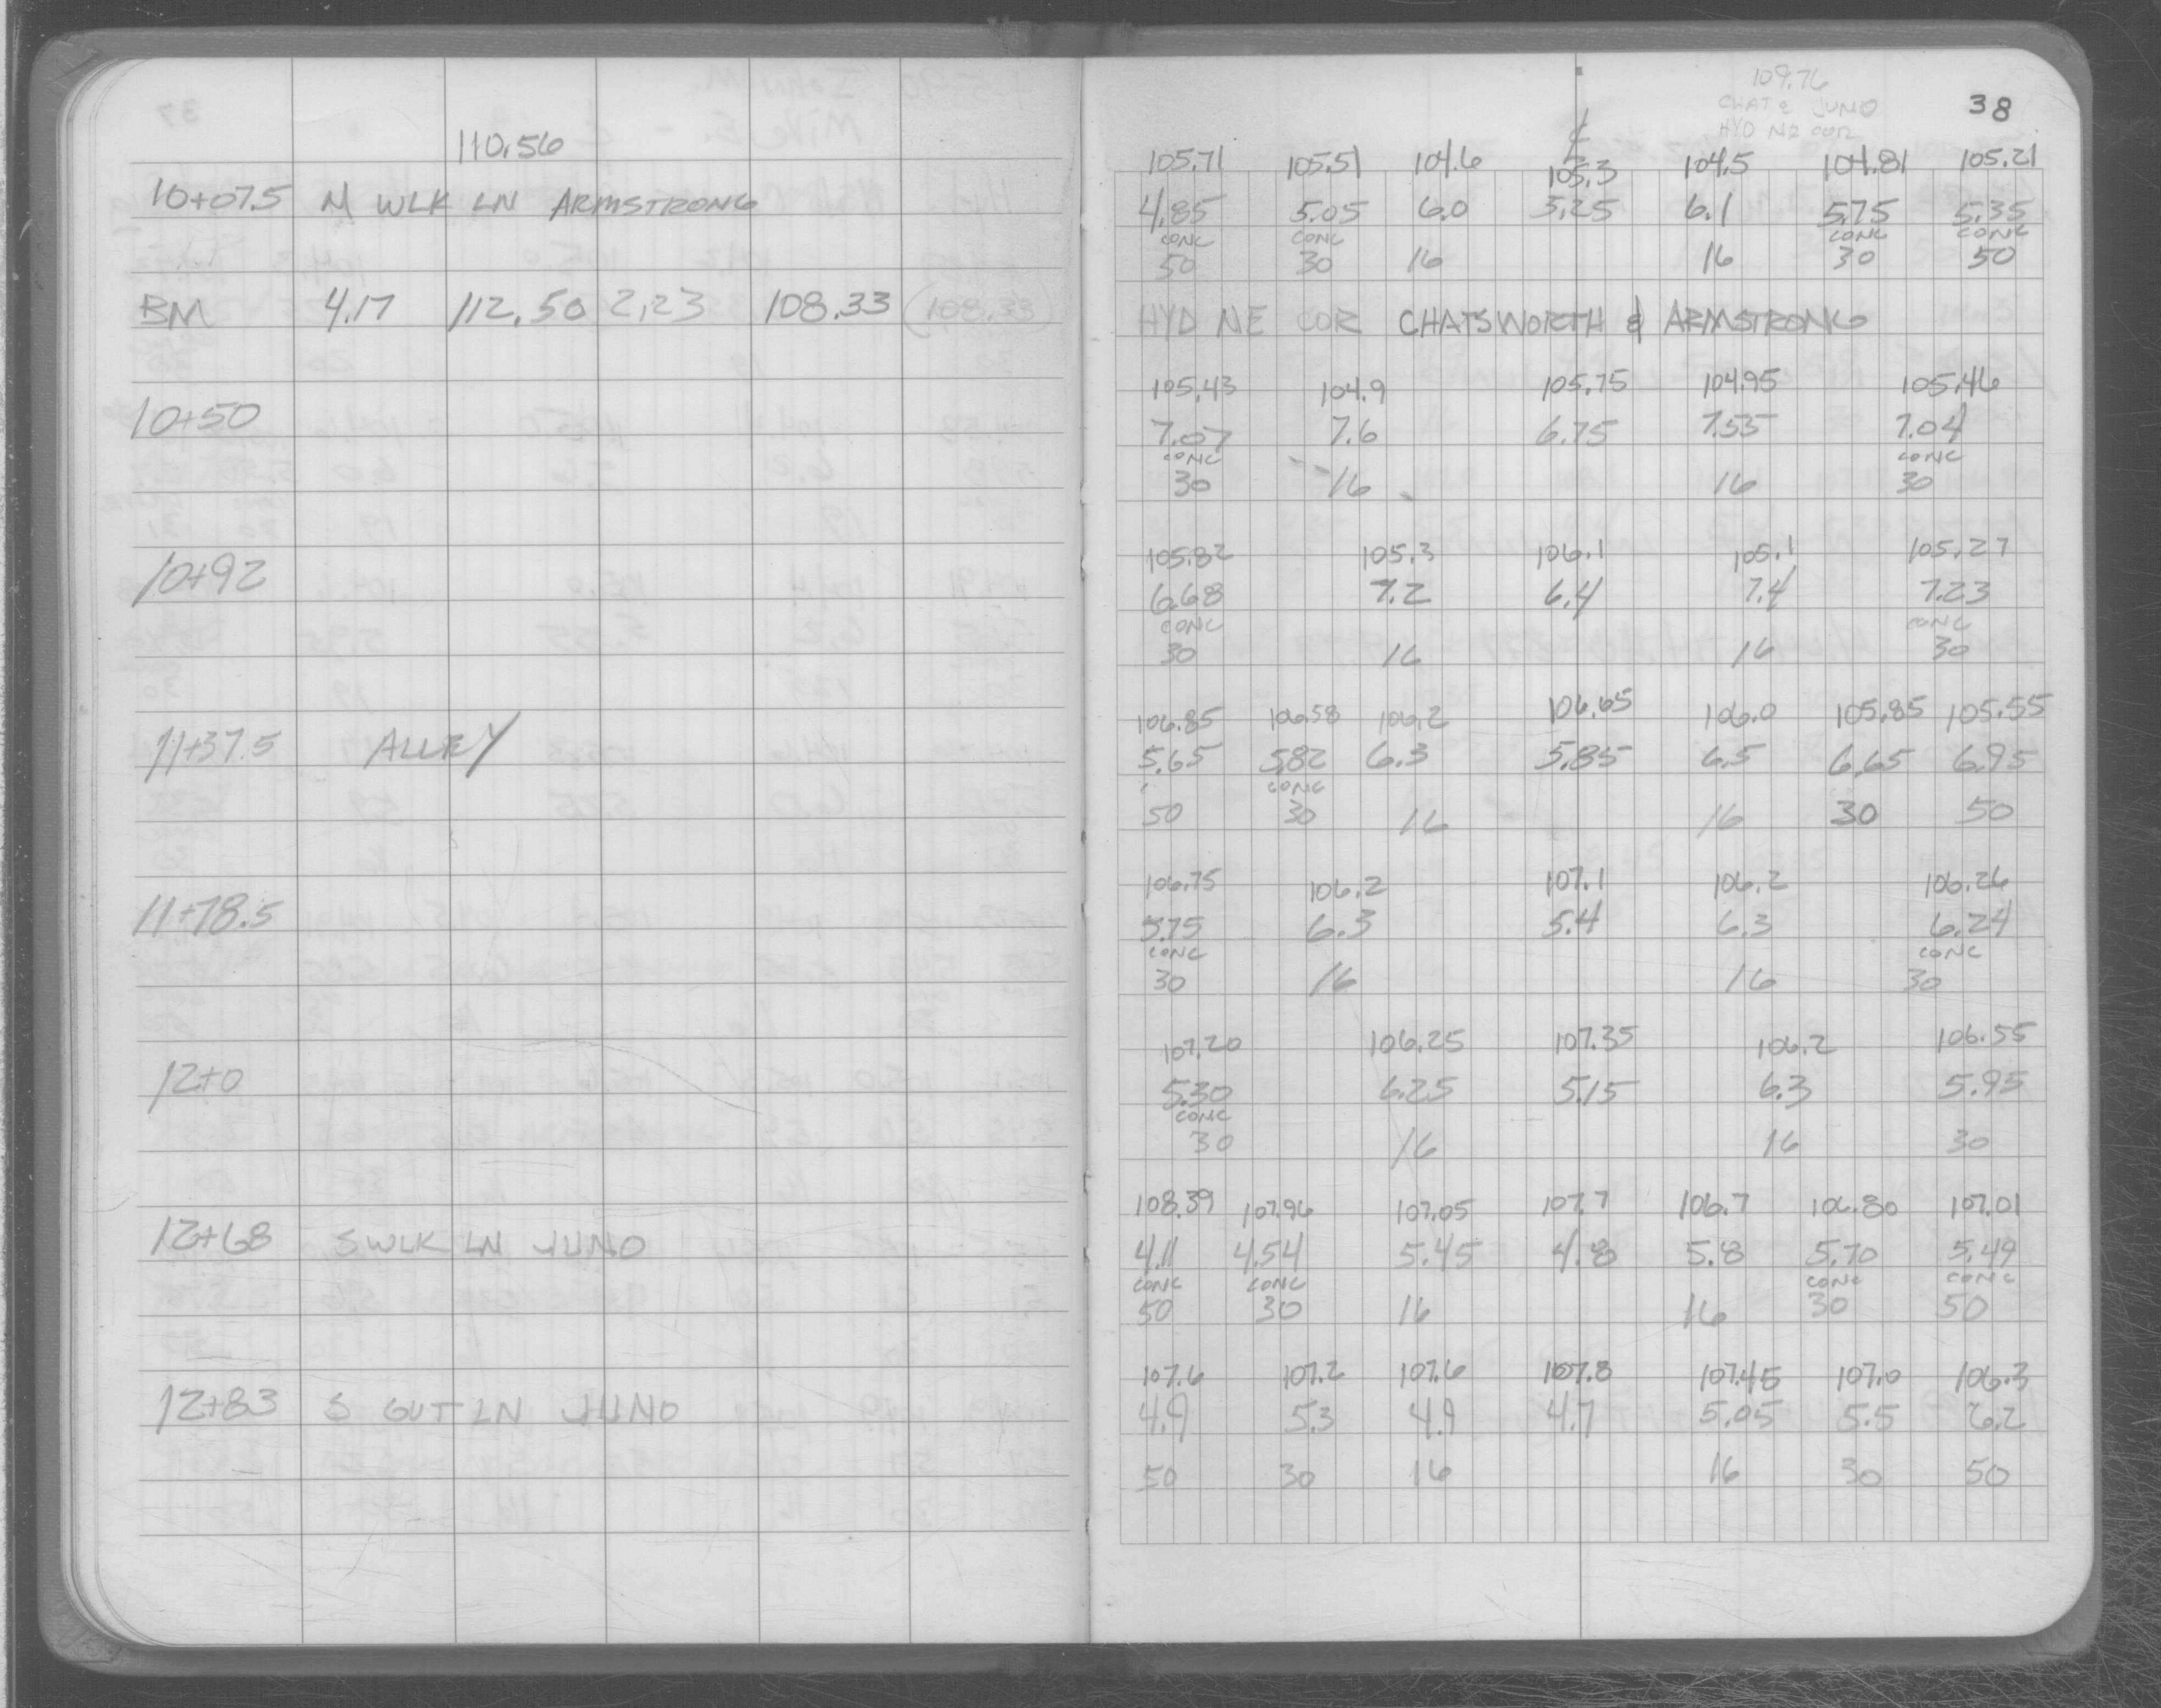 110.56
10+07.5 N WLK LN ARMSTRONG
BM 4.17 112.50 2.23 108.33 (108.33)
10+50
10+92
11+37.5 ALLEY
11+78.5
12+0
12+68 S WLK LN JUNO
12+83 S GUT LN JUNO
109.76
CHAT & JUNO
HYD NE COR
38
℄
105.71 105.51 104.6 105.3 104.5 104.81 105.21
4.85 5.05 6.0 5.25 6.1 5.75 5.35
CONC CONC CONC CONC
50 30 16 16 30 50
HYD NE COR CHATSWORTH & ARMSTRONG
105.43 104.9 105.75 104.95 105.46
7.07 7.6 6.75 7.55 7.04
CONC CONC
30 16 16 30
105.82 105.3 106.1 105.1 105.27
6.68 7.2 6.4 7.4 7.23
CONC CONC
30 16 16 30
106.85 106.58 106.2 106.65 106.0 105.85 105.55
5.65 5.82 6.3 5.85 6.5 6.65 6.95
CONC
50 30 16 16 30 50
106.75 106.2 107.1 106.2 106.26
5.75 6.3 5.4 6.3 6.24
CONC CONC
30 16 16 30
107.20 106.25 107.35 106.2 106.55
5.30 6.25 5.15 6.3 5.95
CONC
30 16 16 30
108.39 107.96 107.05 107.7 106.7 106.80 107.01
4.11 4.54 5.45 4.8 5.8 5.70 5.49
CONC CONC CONC CONC
50 30 16 16 30 50
107.6 107.2 107.6 107.8 107.45 107.0 106.3
4.9 5.3 4.9 4.7 5.05 5.5 6.2
50 30 16 16 30 50